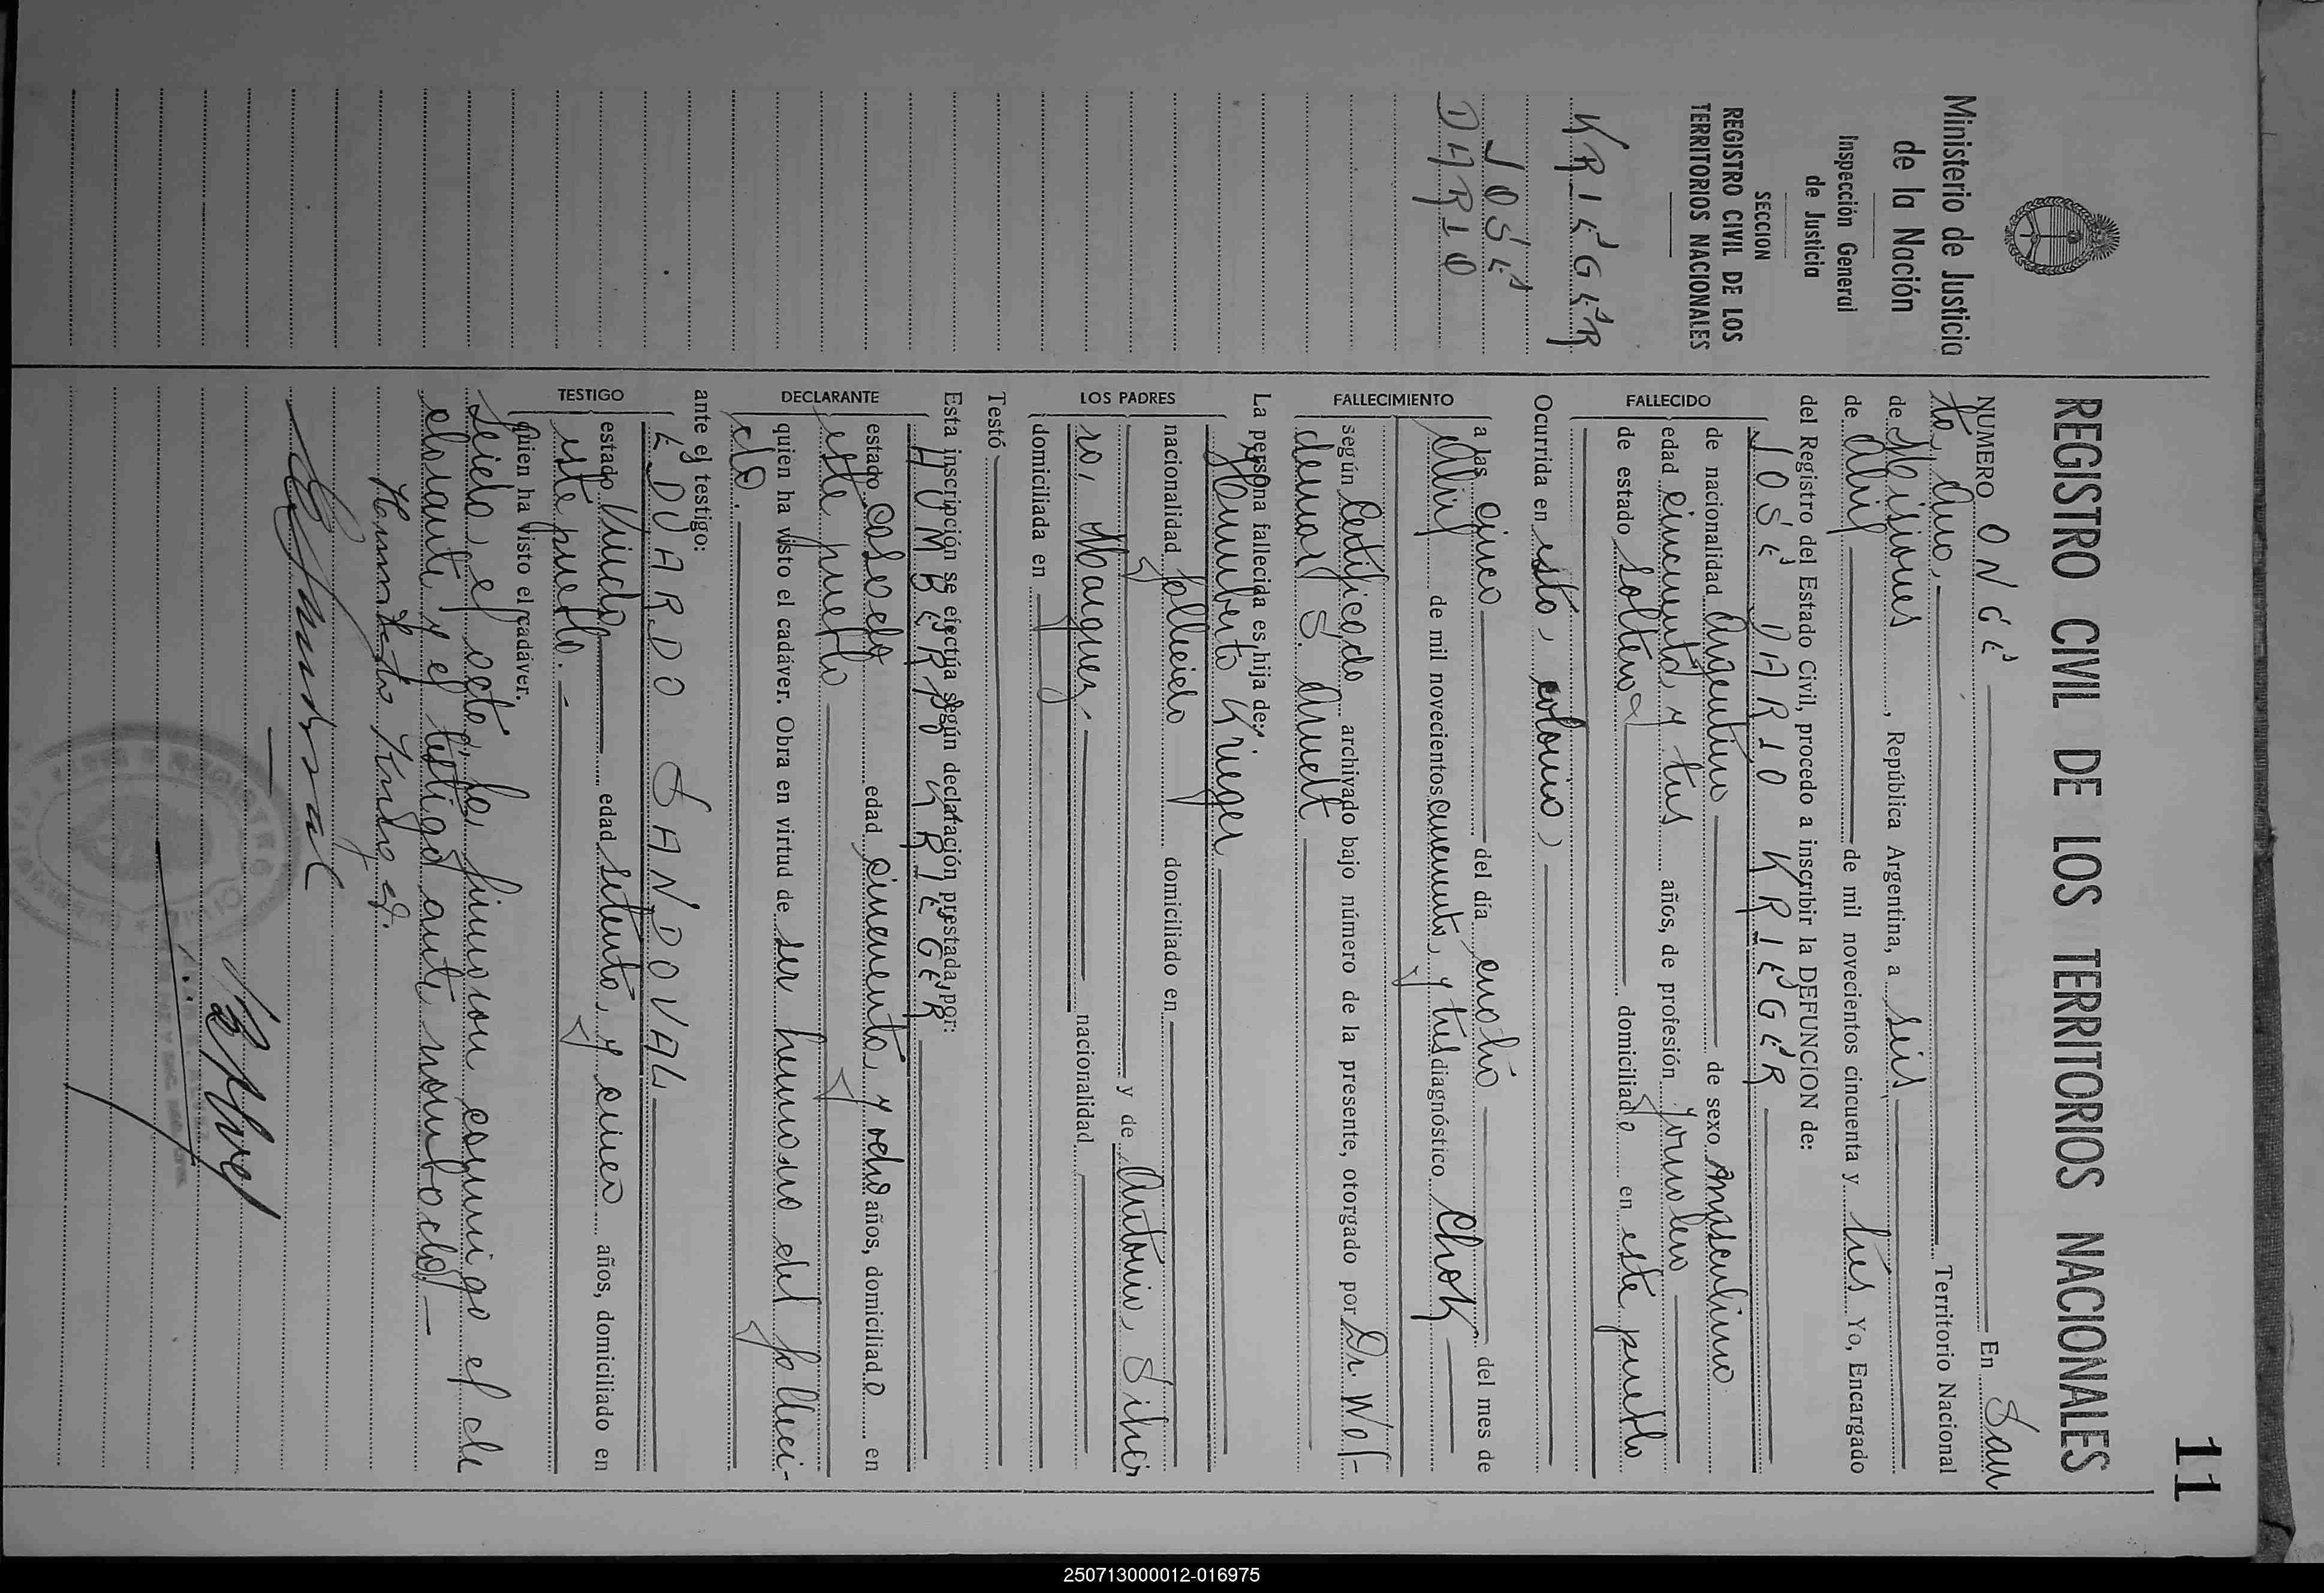 11
Ministerio de Justicia
de la Nación
Inspección General
de Justicia
SECCION
REGISTRO CIVIL DE LOS
TERRITORIOS NACIONALES
KRIEGER
JOSÉ
DARIO
REGISTRO CIVIL DE LOS TERRITORIOS NACIONALES
NUMERO ONCE En San
ta Ana, Territorio Nacional
de Misiones, República Argentina, a seis
de abril de mil novecientos cincuenta y tres Yo, Encargado
del Registro del Estado Civil, procedo a inscribir la DEFUNCION de:
FALLECIDO
JOSÉ DARIO KRIEGER
de nacionalidad Argentino de sexo masculino
edad cincuenta y tres años, de profesión jornalero
de estado soltero domiciliado en este pueblo
Ocurrida en esta, colonia)
FALLECIMIENTO
a las cinco del día cuatro del mes de
abril de mil novecientos cincuenta y tres diagnóstico Chok
según Certificado archivado bajo número de la presente, otorgado por Dr. Wal-
demar S.
La persona fallecida es hija de:
LOS PADRES
Humberto Krieger
nacionalidad fallecido domiciliado en
y de Antonia Silvei
ra, Marques. nacionalidad
domiciliada en
Testó
Esta inscripción se efectúa según declaración prestada por:
DECLARANTE
HUMBERTO KRIEGER
estado casado edad cincuenta y ocho años, domiciliado en
este pueblo
quien ha visto el cadáver. Obra en virtud de ser hermano del falleci-
do.
ante el testigo:
TESTIGO
EDUARDO SANDOVAL
estado Viudo edad setenta y cinco años, domiciliado en
este pueblo.
quien ha visto el cadáver.
Leida el acta, la firmaron conmigo el de
clarante y el testigo ante nombrado
250713000012-016975